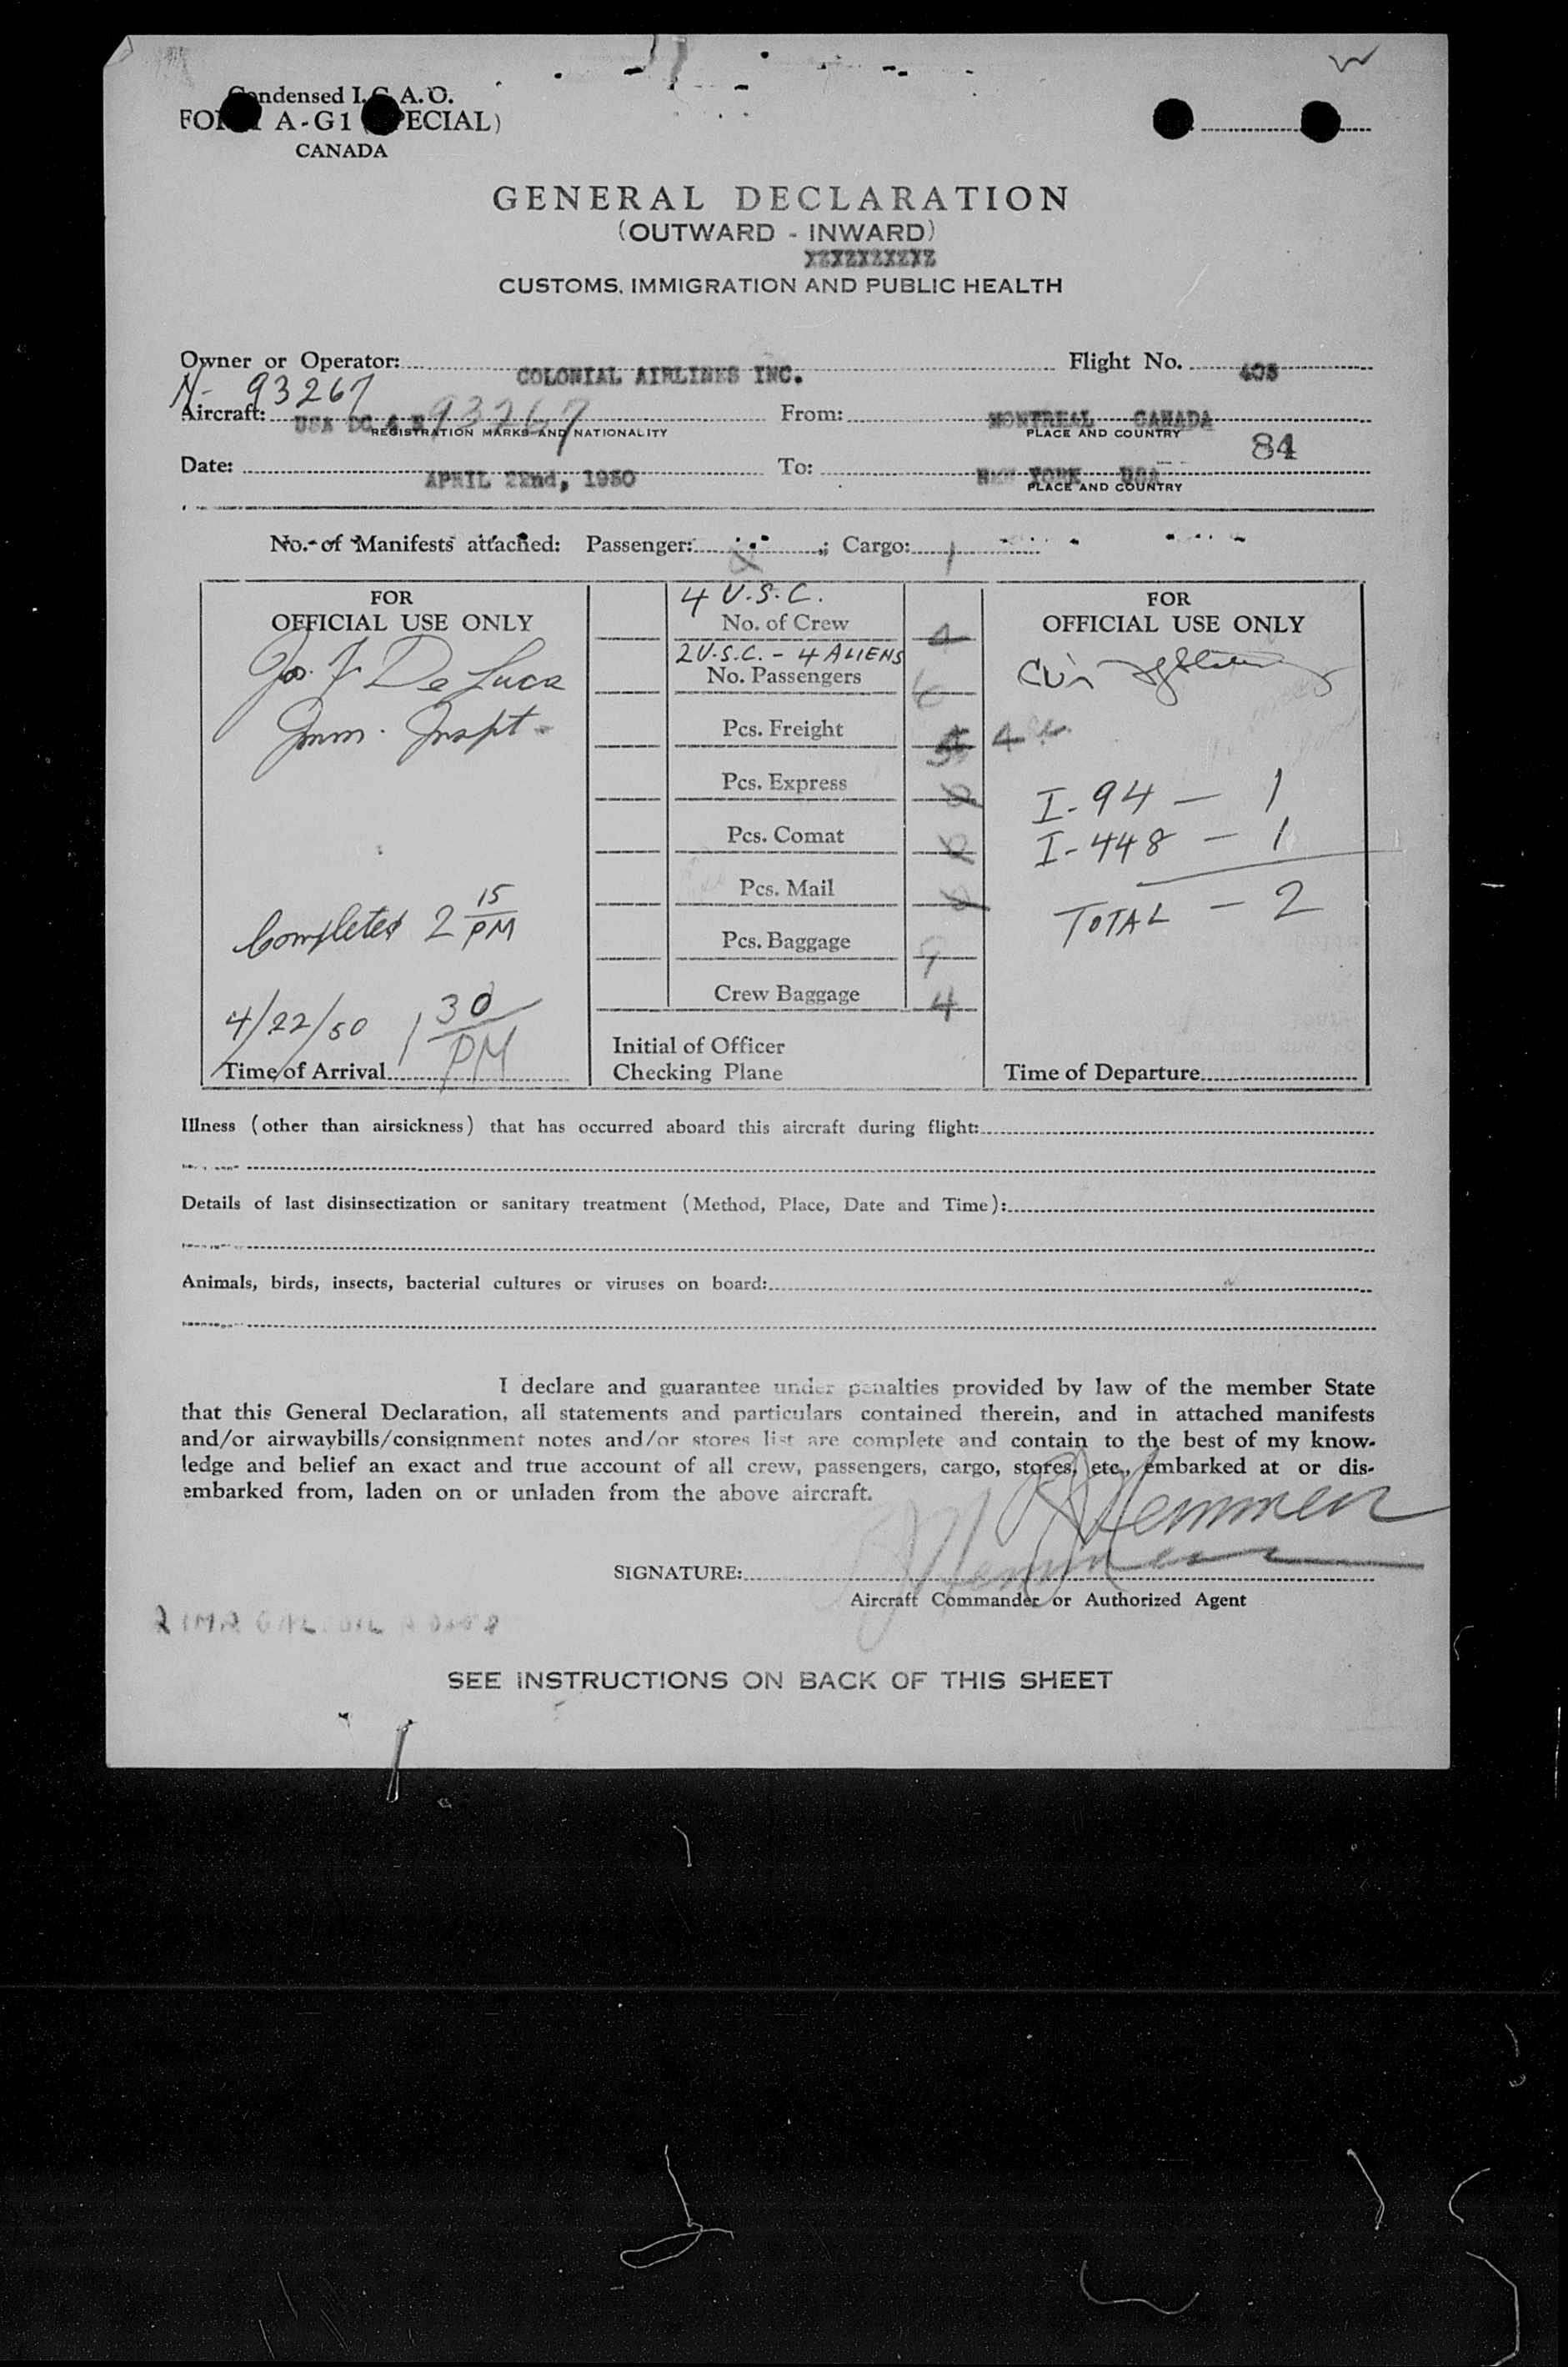 Condensed I.C.A.O.
FORM A-G1 (SPECIAL)
CANADA
GENERAL DECLARATION
(OUTWARD - INWARD)
XZXZXZXZXZ
CUSTOMS, IMMIGRATION AND PUBLIC HEALTH
Owner or Operator: COLONIAL AIRLINES INC. Flight No. 405
N- 93267
Aircraft: USA DC 4 N 93267 From: MONTREAL CANADA
REGISTRATION MARKS AND NATIONALITY PLACE AND COUNTRY
84
Date: APRIL 22nd, 1950 To: NEW YORK USA
PLACE AND COUNTRY
No. of Manifests attached: Passenger: ; Cargo: 1
FOR
OFFICIAL USE ONLY
Jos. F. De Luca
Imm. Inspt.
Completed 2 15 PM
4/22/50 1 30 PM
Time of Arrival
4 U.S.C.
No. of Crew 4
2 U.S.C. - 4 ALIENS
No. Passengers 6
Pcs. Freight
Pcs. Express
Pcs. Comat
Pcs. Mail
Pcs. Baggage 9
Crew Baggage 4
Initial of Officer
Checking Plane
FOR
OFFICIAL USE ONLY
I-94 — 1
I-448 — 1
TOTAL — 2
Time of Departure
Illness (other than airsickness) that has occurred aboard this aircraft during flight:
Details of last disinsectization or sanitary treatment (Method, Place, Date and Time):
Animals, birds, insects, bacterial cultures or viruses on board:
I declare and guarantee under penalties provided by law of the member State
that this General Declaration, all statements and particulars contained therein, and in attached manifests
and/or airwaybills/consignment notes and/or stores list are complete and contain to the best of my know-
ledge and belief an exact and true account of all crew, passengers, cargo, stores, etc., embarked at or dis-
embarked from, laden on or unladen from the above aircraft.
SIGNATURE:
Aircraft Commander or Authorized Agent
SEE INSTRUCTIONS ON BACK OF THIS SHEET